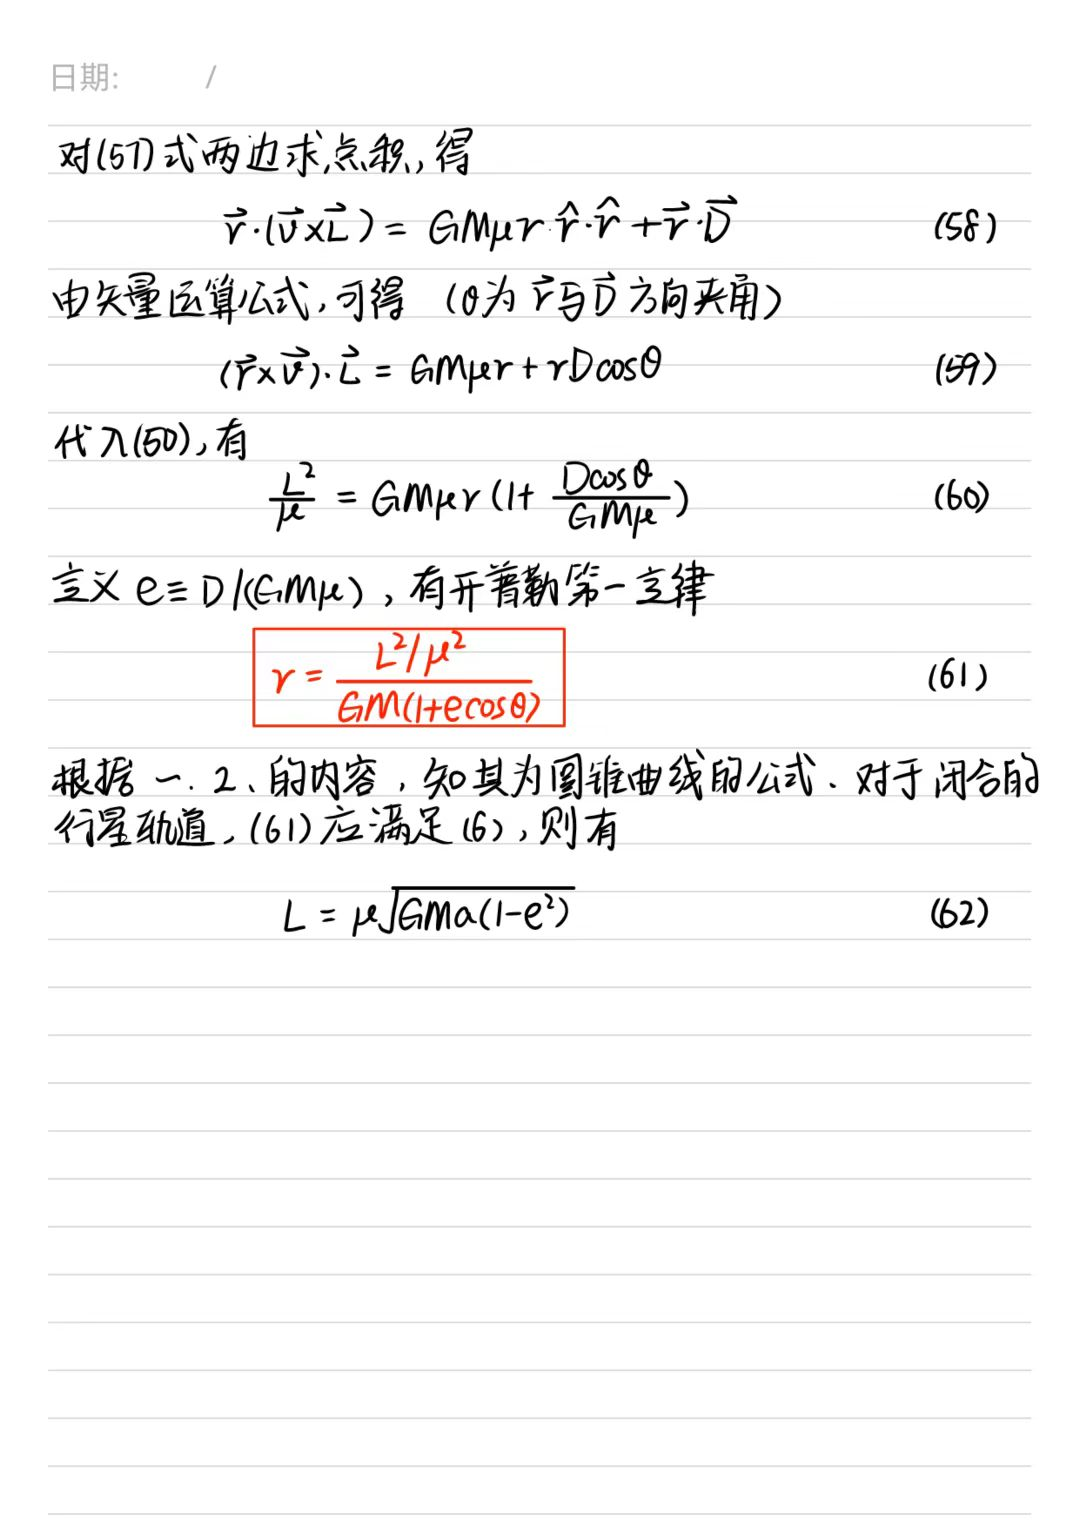 日期: /
对(57)式两边求点积,得
$\vec{r}\cdot(\vec{v}\times\vec{L}) = GM\mu r\cdot\hat{r}\cdot\hat{r}+\vec{r}\cdot\vec{D}$ (58)
由矢量运算公式,可得 (θ为 $\vec{r}$与$\vec{D}$ 方向夹角)
$(\vec{r}\times\vec{v})\cdot\vec{L} = GM\mu r + rD\cos\theta$ (59)
代入(50),有
$\frac{L^2}{\mu} = GM\mu r(1+\frac{D\cos\theta}{GM\mu})$ (60)
定义 e≡D/(GMμ),有开普勒第一定律
$r = \frac{L^2/\mu^2}{GM(1+e\cos\theta)}$ (61)
根据 一.2、的内容,知其为圆锥曲线的公式.对于闭合的
行星轨道,(61)应满足(6),则有
$L = \mu\sqrt{GMa(1-e^2)}$ (62)